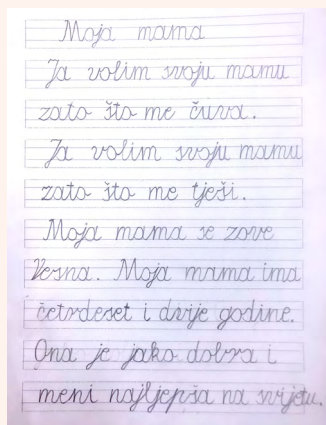 Moja mama
Ja volim svoju mamu
zato što me čuva.
Ja volim svoju mamu
zato što me tješi.
Moja mama se zove
Vesna. Moja mama ima
četrdeset i dvije godine.
Ona je jako dobra i
meni najljepša na svijetu.